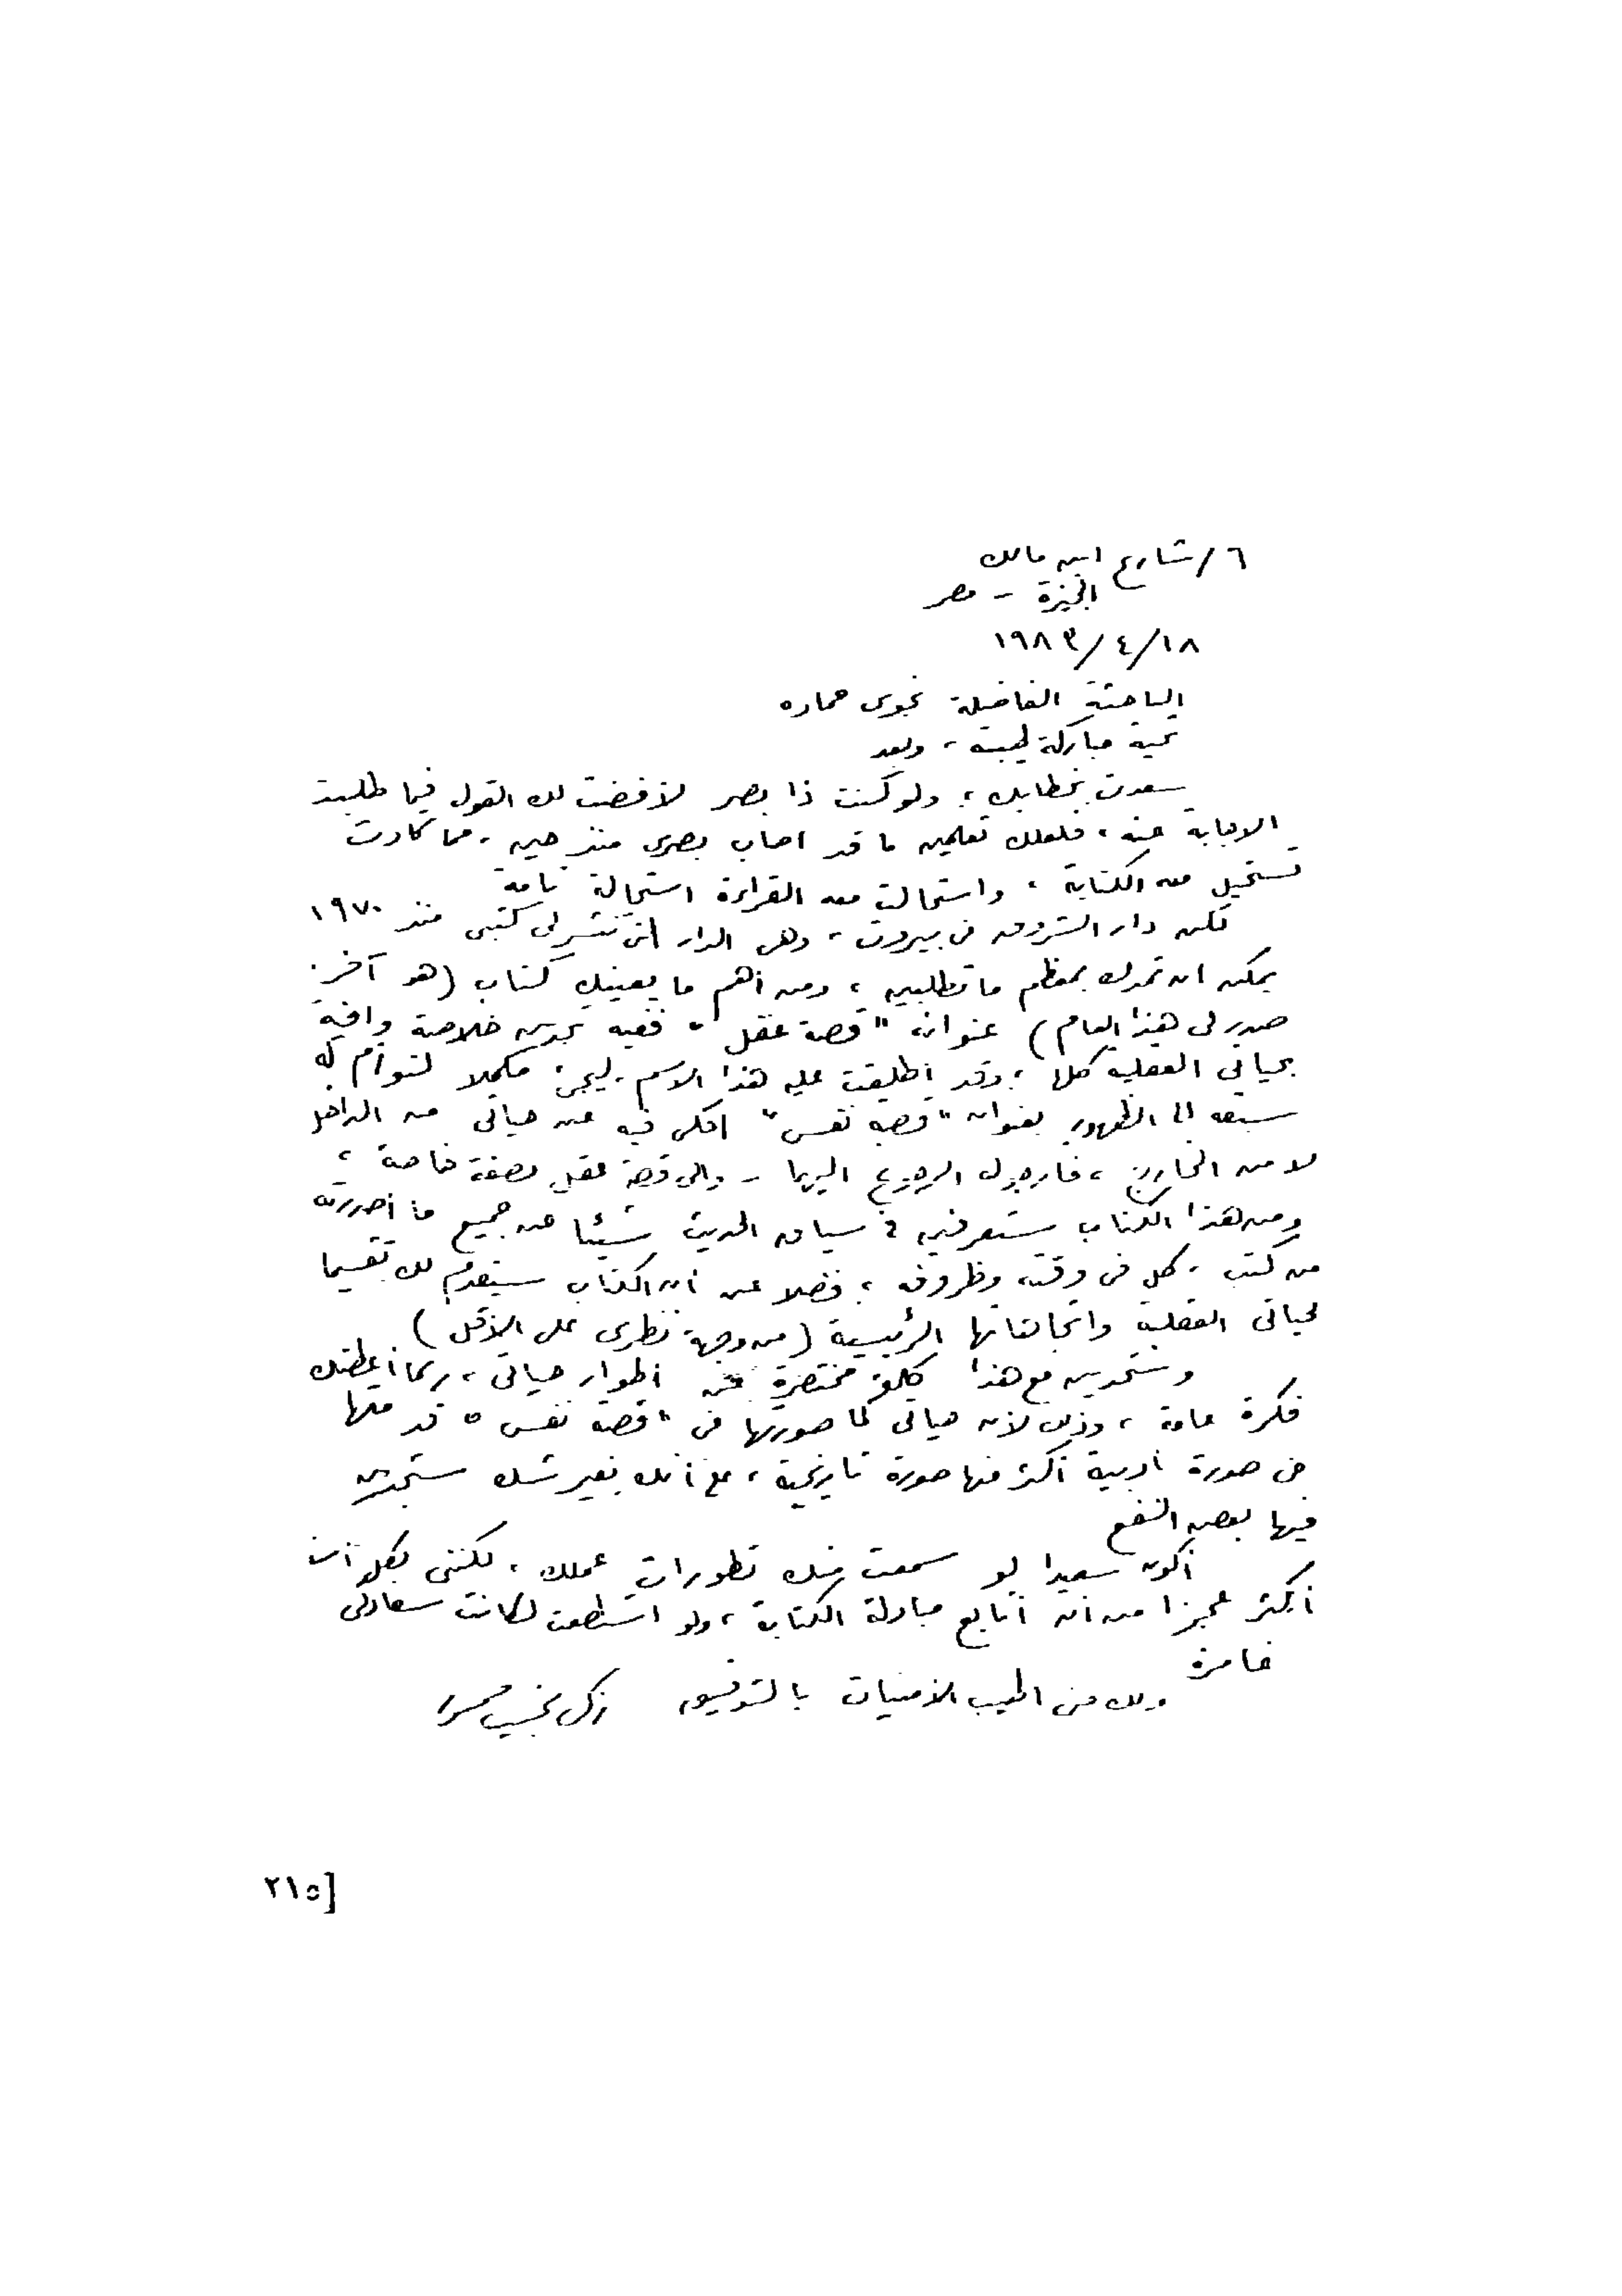 ٦/ شارع ابن مالك
الجيزة - مصر
١٨/٤/١٩٨٣
الباحثة الفاضلة نجوى حماده
تحية مباركة طيبة، وبعد
سعدت بخطابك، ولو كنت ذا بصر لأفضت لك القول فيما طلبت
الاجابة عنه، فلعلك تعلمين ما قد اصاب بصرى منذ حين، مما كادت
تستحيل معه الكتابة، واستحالت معه القراءة استحالة تامة
لكن دار الشروق فى بيروت، وهى الدار التى تنشر لى كتبى منذ ١٩٧٠
يمكن ان تمدك بمعظم ما تطلبين، ومن أهم ما يعينك كتاب (هو آخر
صدر لى هذا العام) عنوانه "قصة عقل" ففيه تجدين خلاصة وافية
بحياتى العقلية كلها، وقد أطلقت عليه هذا الاسم، ليجئ مكملا لتوأم له
سبقه الى الظهور بعنوان "قصة نفس" احكى فيه عن حياتى من الداخل
لا من الخارج، فارجوك الرجوع اليهما - والى قصة عقل بصفة خاصة،
ومن هذا الكتاب ستعرفين فى سياق الحديث شيئا عن جميع ما أصدرته
من كتب، كل فى وقته وظروفه، فضلا عن أن الكتاب سيقدم لك تقسيما
لحياتى العقلية واتجاهاتها الرئيسية (من وجهة نظرى على الأقل)
وستجدين مع هذا كلمة مختصرة عن أطوار حياتى، ربما أعطتك
فكرة عامة، وذلك لأن حياتى كما صورتها فى "قصة نفس" قد
فى صورة أدبية أكثر منها صورة تاريخية، على أنك بغير شك ستجدين
فيها بعض النفع
أكون سعيدا لو سمعت منك تطورات عملك، لكننى بكل أسف
أكثر عجزا من أن أتابع مبادلة الكتابة، ولو استطعت لكانت سعادتى
غامرة
ولك منى اطيب الأمنيات بالتوفيق زكى نجيب محمود
[٢١٥